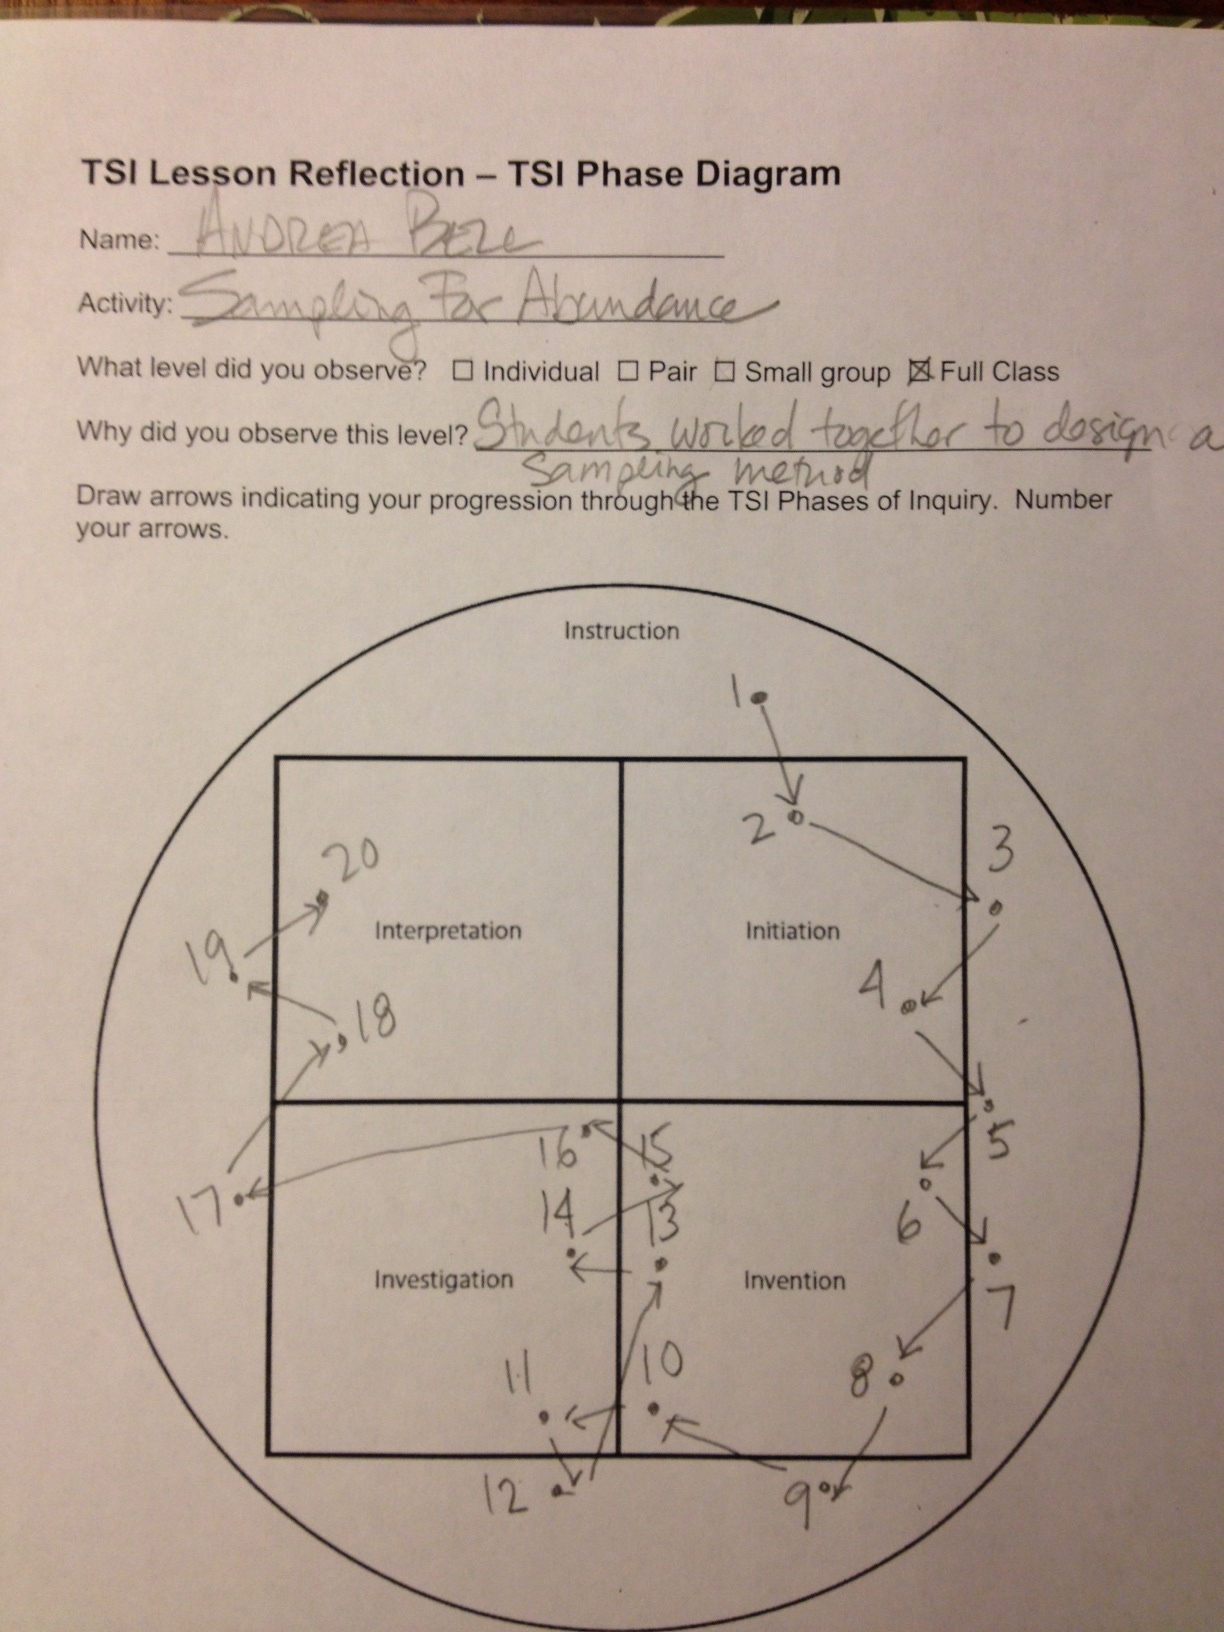 TSI Lesson Reflection – TSI Phase Diagram
Name: ANDREA
Activity: Sampling For Abundance
What level did you observe? ☐ Individual ☐ Pair ☐ Small group ☒ Full Class
Why did you observe this level? Students worked together to design a
sampling method
Draw arrows indicating your progression through the TSI Phases of Inquiry. Number
your arrows.
Instruction
1
2
3
20
Interpretation
Initiation
19
4
18
5
16
15
17
14
13
6
Investigation
Invention
7
11
10
8
12
9